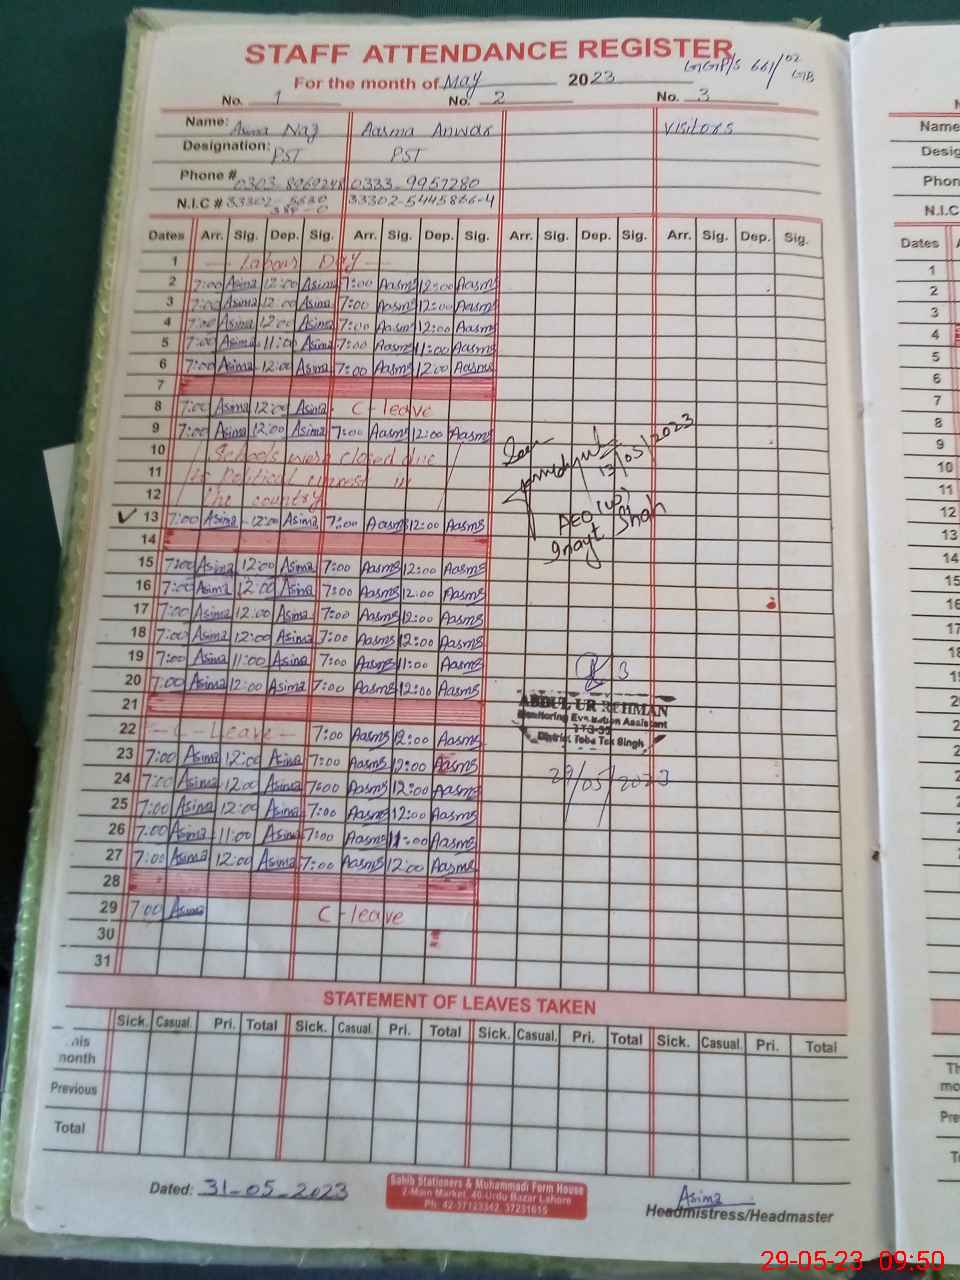 STAFF ATTENDANCE REGISTER
For the month of May 2023 GGP/S 661/02 GB
No. 1 No. 2 No. 3
Name: Asima Naz Aasma Anwar Visitors
Designation: PST PST
Phone # 0303-8969248 0333-9957280
N.I.C # 33302- 33302-5445866-4
Dates Arr. Sig. Dep. Sig. Arr. Sig. Dep. Sig. Arr. Sig. Dep. Sig. Arr. Sig. Dep. Sig.
1 Labour Day
2 7:00 Asima 12:00 Asima 7:00 Aasma 12:00 Aasma
3 7:00 Asima 12:00 Asima 7:00 Aasma 12:00 Aasma
4 7:00 Asima 12:00 Asima 7:00 Aasma 12:00 Aasma
5 7:00 Asima 11:00 Asima 7:00 Aasma 11:00 Aasma
6 7:00 Asima 12:00 Asima 7:00 Aasma 12:00 Aasma
7
8 7:00 Asima 12:00 Asima C-leave
9 7:00 Asima 12:00 Asima 7:00 Aasma 12:00 Aasma
10 Schools were closed due
11 to Political unrest in
12 the country
Seen
13/05/2023
AEO (W)
Inayt Shah
13 7:00 Asima 12:00 Asima 7:00 Aasma 12:00 Aasma
14
15 7:00 Asima 12:00 Asima 7:00 Aasma 12:00 Aasma
16 7:00 Asima 12:00 Asima 7:00 Aasma 12:00 Aasma
17 7:00 Asima 12:00 Asima 7:00 Aasma 12:00 Aasma
18 7:00 Asima 12:00 Asima 7:00 Aasma 12:00 Aasma
19 7:00 Asima 11:00 Asima 7:00 Aasma 11:00 Aasma
20 7:00 Asima 12:00 Asima 7:00 Aasma 12:00 Aasma
21
ABDUL UR REHMAN
Monitoring Evaluation Assistant
District Toba Tek Singh
29/05/2023
22 C-Leave 7:00 Aasma 12:00 Aasma
23 7:00 Asima 12:00 Asima 7:00 Aasma 12:00 Aasma
24 7:00 Asima 12:00 Asima 7:00 Aasma 12:00 Aasma
25 7:00 Asima 12:00 Asima 7:00 Aasma 12:00 Aasma
26 7:00 Asima 11:00 Asima 7:00 Aasma 11:00 Aasma
27 7:00 Asima 12:00 Asima 7:00 Aasma 12:00 Aasma
28
29 7:00 Asima C-leave
30
31
STATEMENT OF LEAVES TAKEN
Sick. Casual. Pri. Total Sick. Casual. Pri. Total Sick. Casual. Pri. Total Sick. Casual. Pri. Total
month
Previous
Total
Dated: 31-05-2023
Sahib Stationers & Muhammadi Form House
2-Main Market, 40-Urdu Bazar Lahore
Ph: 42-37123342, 37231615
Asima
Headmistress/Headmaster
Dates
1
2
3
4
5
6
7
8
9
10
11
12
13
14
15
29-05-23 09:50